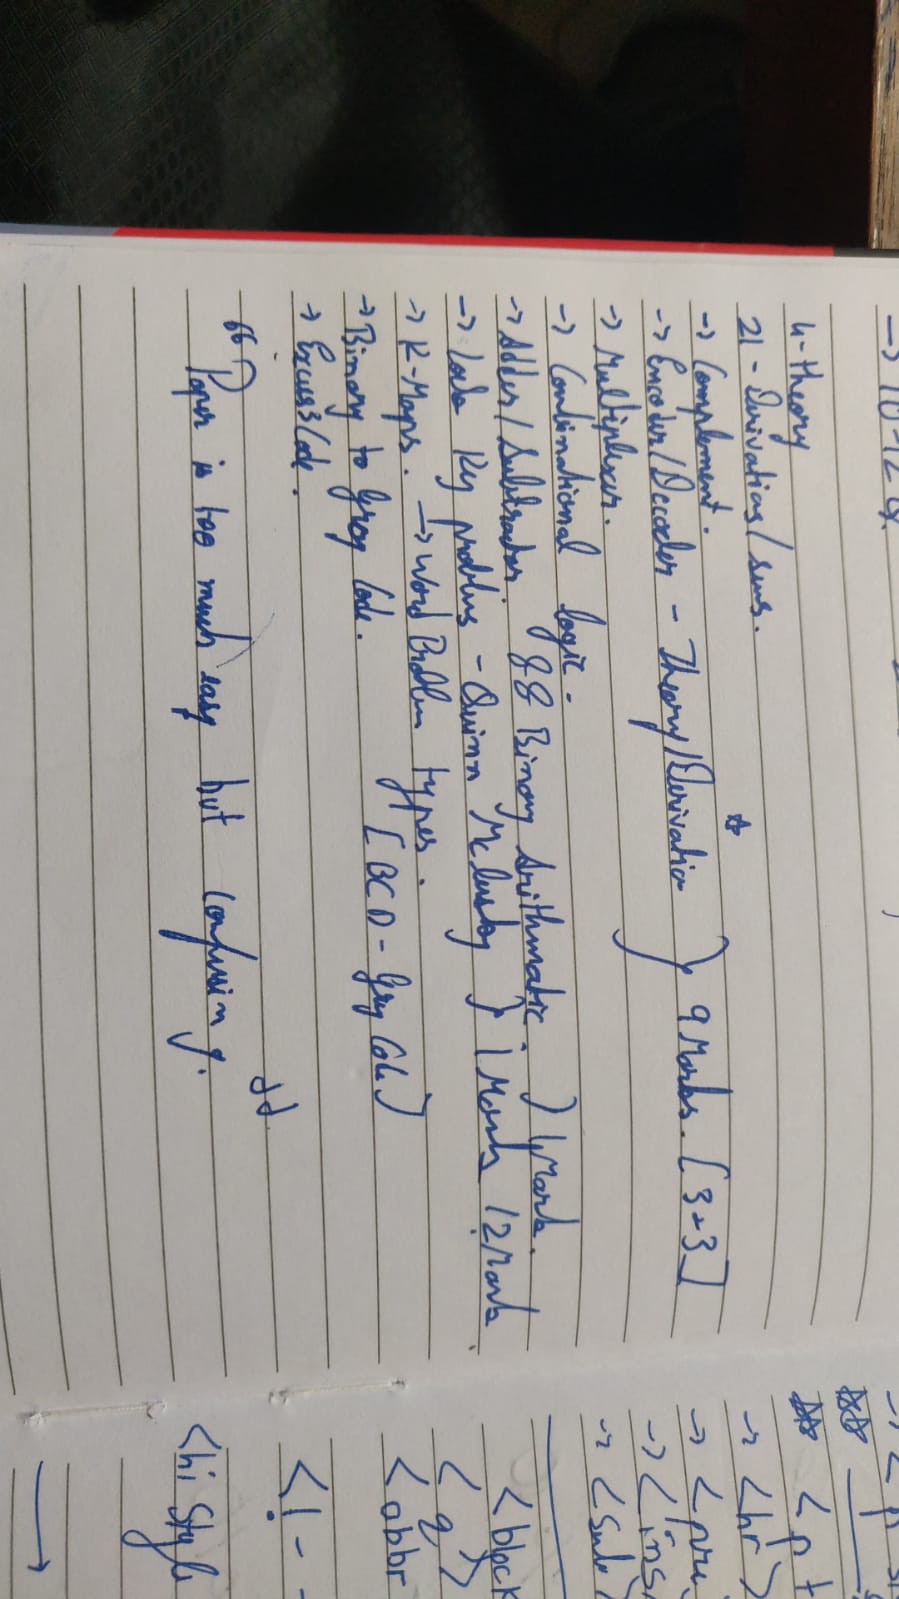 → 10-12 Q.
4-theory
21 - Derivatias/sums.
→ Complement.
→ Encoder/Decoder - Theory/Derivatio } 9 Marks. [3-3]
→ Multiplexer.
→ Combinational logic -
→ Adder/Subtractor. 88 Binary Arithmatic. ) 1 Mark.
→ problms - Quinn McClusky } 1 Mark /2 Mark
→ K-Maps. → Word Problem types.
→ Binary to Grey Code. [BCD - Grey Code]
→ Excess3 Code.
"Paper is too much easy but confusing."
<p
<p t
→ <hr>
→ <pre>
→ <ins
→ <Sub>
<block
<q>
<abbr
<!--
<h1 Style